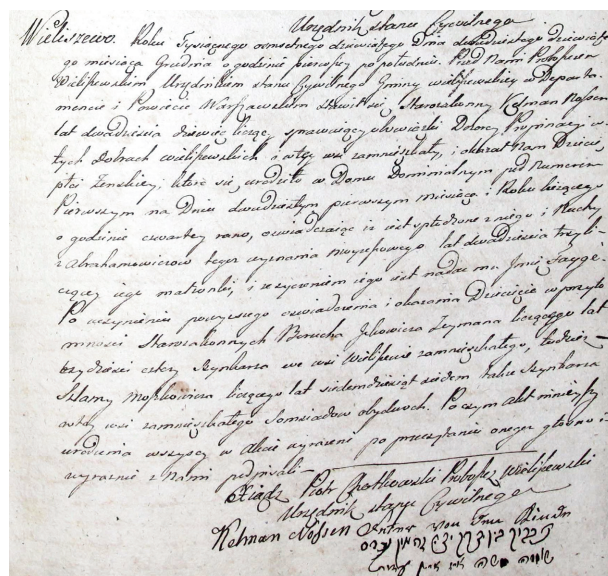 Urzędnik Stanu Cywilnego
Wieliszewo. Roku Tysiącznego osmsetnego dziewiątego Dnia dwudziestego dziewiąte-
go miesiąca Grudnia o godzinie pierwszey po południu. Przed Nami Proboszczem
Wieliszewskim Urzędnikiem Stanu Cywilnego Gminy wieliszewskiey w Departa-
mencie i Powiecie Warszawskim stawił się Starozakonny Kelman Nossen
lat dwadzieścia dziewięć liczący sprawuiący obowiązki Dozorcy Propinacyi w
tychże dobrach wieliszewskich i w tey wsi zamieszkały, i okazał Nam Dziecię
płci żenskiey, które się urodziło w Domu Dominialnym pod Numerem
Pierwszym na Dniu dwudziestym pierwszym miesiąca i Roku bieżącego
o godzinie czwartey rano, oswiadczaiąc iż iest spłodzone z niego i Ruchy
z Abrahamowiczow tegoż wyznania moyżeszowego lat dwadzieścia trzy li-
czącey iego małżonki, i że życzeniem iego iest nadać mu Jmię Faygę
Po uczynieniu powyższego oswiadczenia i okazania Dziecięcia w przyto-
mności Starozakonnych Berucha Jckowicza Zeymana liczącego lat
trzydzieści cztery Szynkarza we wsi Wieliszewie zamieszkałego, tudzież
Szlamy Moszkowicza liczącego lat siedemdziesiąt siedem także Szynkarza
w tey wsi zamieszkałego Somsiadow obydwuch. Po czym Akt ninieyszy
urodzenia wszyscy w Akcie wyrażeni po przeczytaniu onegoż głosno i
wyraźnie z Nami podpisali
Xiądz Piotr Proboszcz Wieliszewski
Urzędnik Stanu Cywilnego
Kelman Nossen